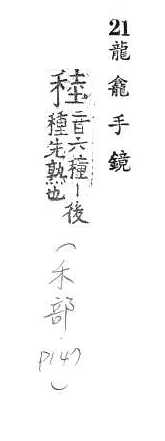 21 龍龕手鏡
稑
音六種丨後
種先熟也
(禾部 P147)